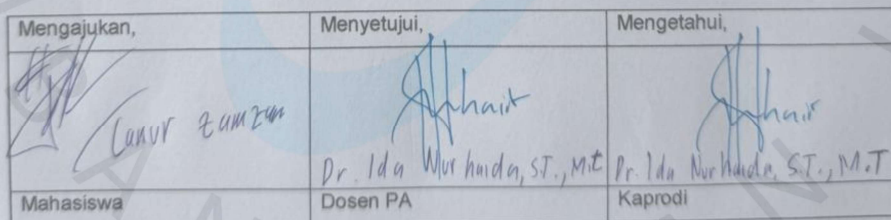 Mengajukan, Menyetujui, Mengetahui,
Lanur Zamzan
Dr. Ida Nurhaida, ST., M.T Dr. Ida Nurhaida, S.T., M.T
Mahasiswa Dosen PA Kaprodi